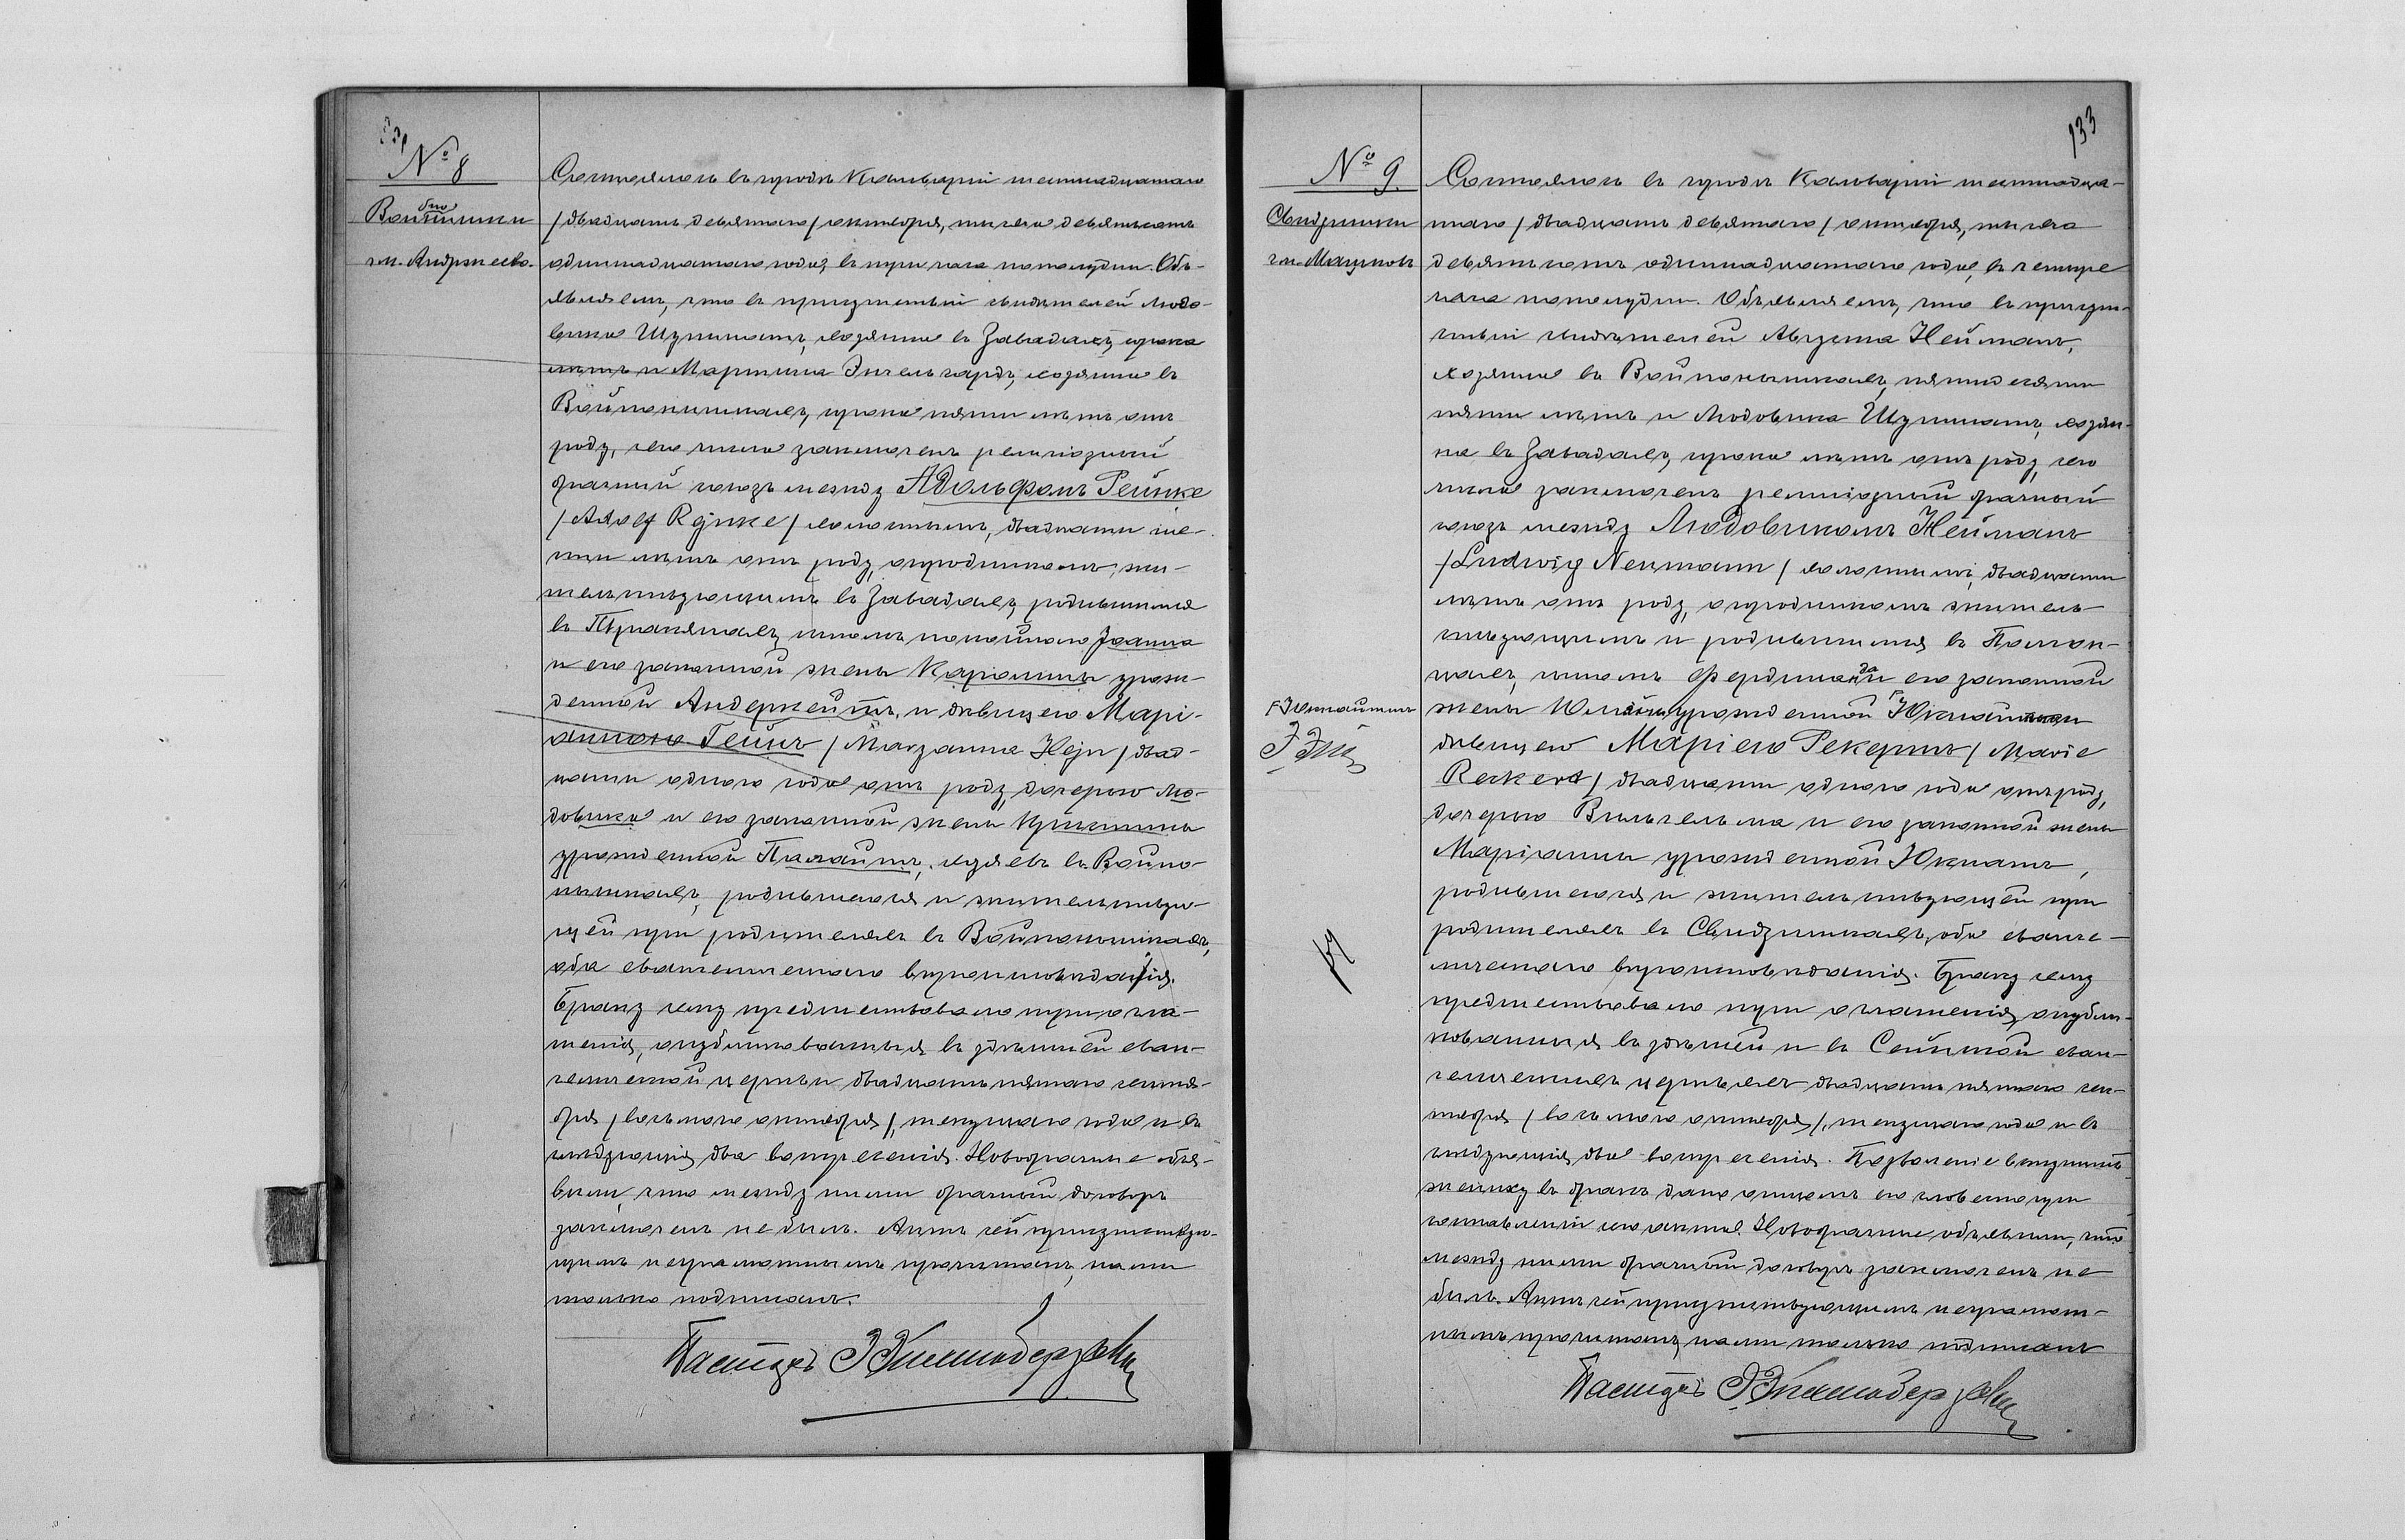 № 8
Состоялось въ городѣ Кальваріи шестнадцатаго
/двадцать девятаго/ октября, тысяча девятьсотъ
гм. Андржеево.
одиннадцатаго года, въ три часа пополудни. Объ-
являемъ, что въ присутствіи свидѣтелей Людо-
вика Шукшатъ, хозяина въ Завадахъ, сорока
лѣтъ и Мартина Энгельгардъ, хозяина въ
Войпонишкахъ, сорока пяти лѣтъ отъ
роду, сего числа заключенъ религіозный
брачный союзъ между Адольфомъ Рейнке
/Adolf Rejnke/ холостымъ, двадцати ше-
сти лѣтъ отъ роду, огородникомъ, жи-
тельствующимъ въ Завадахъ, родившимся
въ сыномъ покойнаго Іоанна
и его законной жены Каролины урож-
денной Андеркейтъ, и дѣвицею Марі-
анною Гейнъ /Maryanna Hejn/ двад-
цати одного года отъ роду, дочерью Лю-
довика и его законной жены Кристины
урожденной хозяевъ въ Войпо-
нишкахъ, родившеюся и жительствую-
щей при родителяхъ въ Войпонишкахъ,
оба евангелическаго вѣроисповѣданія.
Браку сему предшествовало три огла-
шенія, опубликованныя въ здѣшней еван-
гелической церкви двадцать пятаго сентя-
бря /восьмого октября/, текущаго года и въ
слѣдующія два воскресенія. Новобрачные объя-
вили, что между ними брачный договоръ
заключенъ не былъ. Актъ сей присутствую-
щимъ неграмотнымъ прочитанъ, нами
только подписанъ.
Пасторъ
133
№ 9.
Состоялось въ городѣ Кальваріи шестнадца-
Свидзишки
таго /двадцать девятаго/ октября, тысяча
девятьсотъ одиннадцатаго года, въ четыре
часа пополудни. Объявляемъ, что въ присут-
ствіи свидѣтелей Августа Нейманъ,
хозяина въ Войпонишкахъ, пятидесяти
пяти лѣтъ и Людовика Шукшатъ, хозяи-
на въ Завадахъ, сорока лѣтъ отъ роду, сего
числа заключенъ религіозный брачный
союзъ между Людовикомъ Нейманъ
/Ludwig Neumann/ холостымъ, двадцати
лѣтъ отъ роду, огородникомъ житель-
ствующимъ и родившимся въ
сыномъ Фердинанда и его законной
жены урожденной
дѣвицею Маріею Рекертъ /Marie
Reckert/ двадцати одного года отъ роду,
дочерью Вильгельма и его законной жены
Маріанны урожденной Юкнатъ,
родившеюся и жительствующей при
родителяхъ въ Свидзишкахъ, оба еванге-
лическаго вѣроисповѣданія. Браку сему
предшествовало три оглашенія, опубли-
кованныя въ здѣшней и въ Сейнской еван-
гелическихъ церквахъ двадцать пятаго сен-
тября /восьмого октября/, текущаго года и въ
слѣдующія два воскресенія. Позволеніе вступить
жениху въ бракъ дано отцомъ его словесно при
составленіи сего акта. Новобрачные объявили, что
между ними брачный договоръ заключенъ не
былъ. Актъ сей присутствующимъ неграмот-
нымъ прочитанъ, нами только подписанъ
Пасторъ